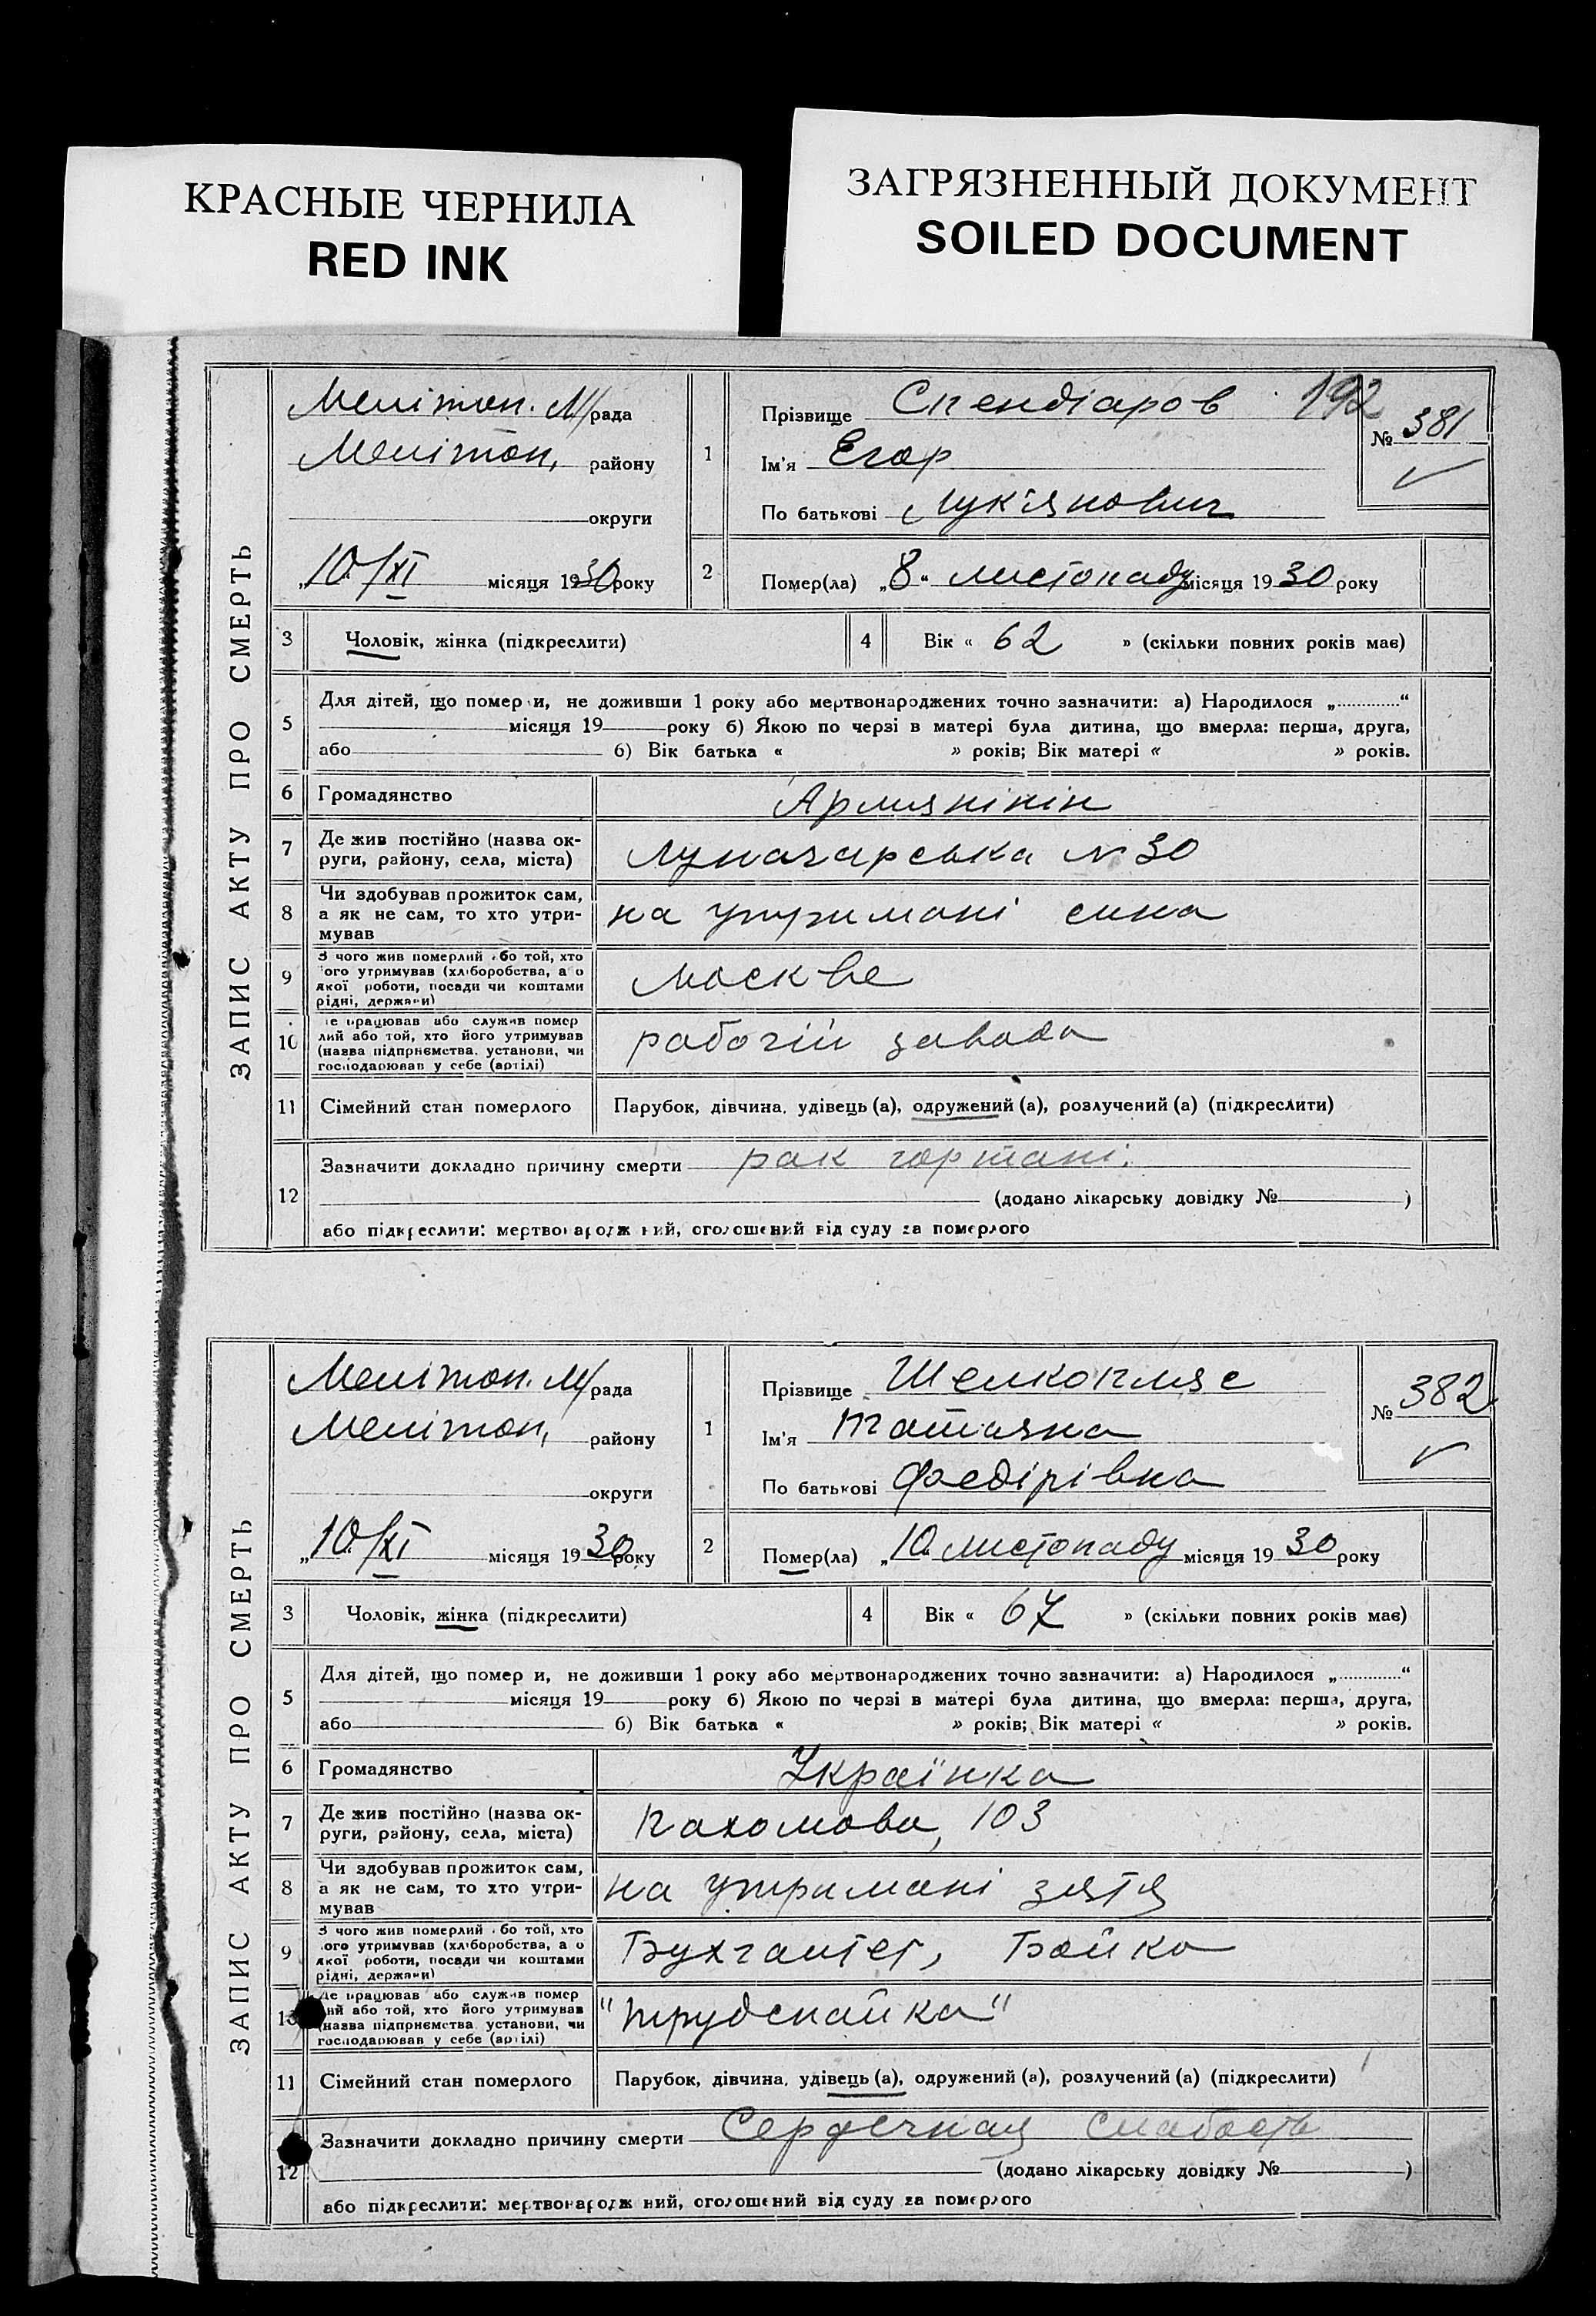 КРАСНЫЕ ЧЕРНИЛА
RED INK
ЗАГРЯЗНЕННЫЙ ДОКУМЕНТ
SOILED DOCUMENT
ЗАПИС АКТУ ПРО СМЕРТЬ
Мелітоп. М/рада
Мелітоп, району
округи
„10/XI місяця 1930 року
1
Прізвище Спендіаров 192
№ 381
Ім'я Егор
По батькові Лук'янович
2 Помер(ла) „8“ листопаду місяця 1930 року
3 Чоловік, жінка (підкреслити) 4 Вік « 62 » (скільки повних років має)
5
Для дітей, що помер и, не доживши 1 року або мертвонароджених точно зазначити: а) Народилося „............“
місяця 19 року б) Якою по черзі в матері була дитина, що вмерла: перша, друга,
або б) Вік батька « » років; Вік матері « » років.
6 Громадянство Армянінін
7 Де жив постійно (назва ок-
руги, району, села, міста) Луначарська № 30
8 Чи здобував прожиток сам,
а як не сам, то хто утри-
мував на утримані сина
9 З чого жив померлий або той, хто
його утримував (хліборобства, а о
якої роботи, посади чи коштами
рідні, держави) Москве
10 Де працював або служив помер
лий або той, хто його утримував
(назва підприємства, установи, чи
господарював у себе (артілі) рабочій завода
11 Сімейний стан померлого Парубок, дівчина, удівець (а), одружений (а), розлучений (а) (підкреслити)
12
Зазначити докладно причину смерти рак гортані.
(додано лікарську довідку № )
або підкреслити: мертвонародж ний, оголошений від суду за померлого
ЗАПИС АКТУ ПРО СМЕРТЬ
Мелітоп. М/рада
Мелітоп, району
округи
„10/XI місяця 1930 року
1
Прізвище Шелкопляс
№ 382
Ім'я Татьяна
По батькові Федірівна
2 Помер(ла) „10 листопаду місяця 1930 року
3 Чоловік, жінка (підкреслити) 4 Вік « 67 » (скільки повних років має)
5
Для дітей, що помер и, не доживши 1 року або мертвонароджених точно зазначити: а) Народилося „............“
місяця 19 року б) Якою по черзі в матері була дитина, що вмерла: перша, друга,
або б) Вік батька « » років; Вік матері « » років.
6 Громадянство Українка
7 Де жив постійно (назва ок-
руги, району, села, міста) Пахомова, 103
8 Чи здобував прожиток сам,
а як не сам, то хто утри-
мував на утримані зятя
9 З чого жив померлий або той, хто
його утримував (хліборобства, а о
якої роботи, посади чи коштами
рідні, держави) Бухгалтер, Бойко
10 Де працював або служив помер
лий або той, хто його утримував
(назва підприємства, установи, чи
господарював у себе (артілі) "Трудспайка"
11 Сімейний стан померлого Парубок, дівчина, удівець (а), одружений (а), розлучений (а) (підкреслити)
12
Зазначити докладно причину смерти Сердечная слабость
(додано лікарську довідку № )
або підкреслити: мертвонародж ний, оголошений від суду за померлого